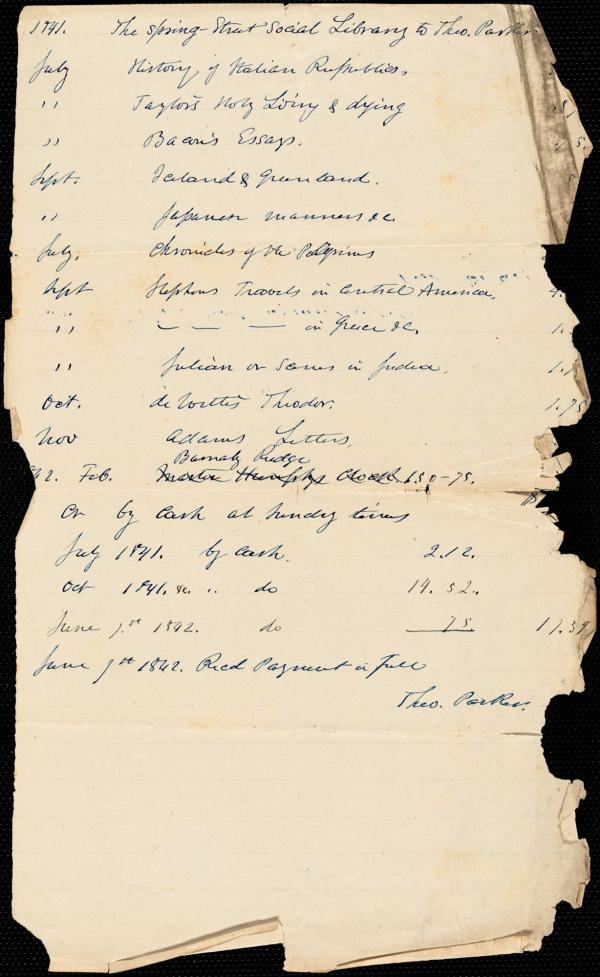 1841. The Spring-Street Social Library to Theo. Parker
July History of Italian Republics,
" Taylor's Holy Living & dying
" Bacon's Essays.
Sept. Iceland & Greenland.
" Japanese manners &c.
July. Chronicles of the Pilgrims
Sept Stephens Travels in Central America, 4.
" — — — in Greece &c. 1.
" Julian or Scenes in Judea. 1.
Oct. de Wette's Theodor. 1.75
Nov Adams Letters,
Barnaby Rudge
42. Feb. Master Humphry Clock. 1.50-75.
Cr by Cash at sundry times
July 1841. by Cash. 2.12.
Oct 1841. &c. " do 14. 52.
June 7.th 1842. do 75 17.39
June 7th 1842. Recd Payment in full
Theo. Parker.